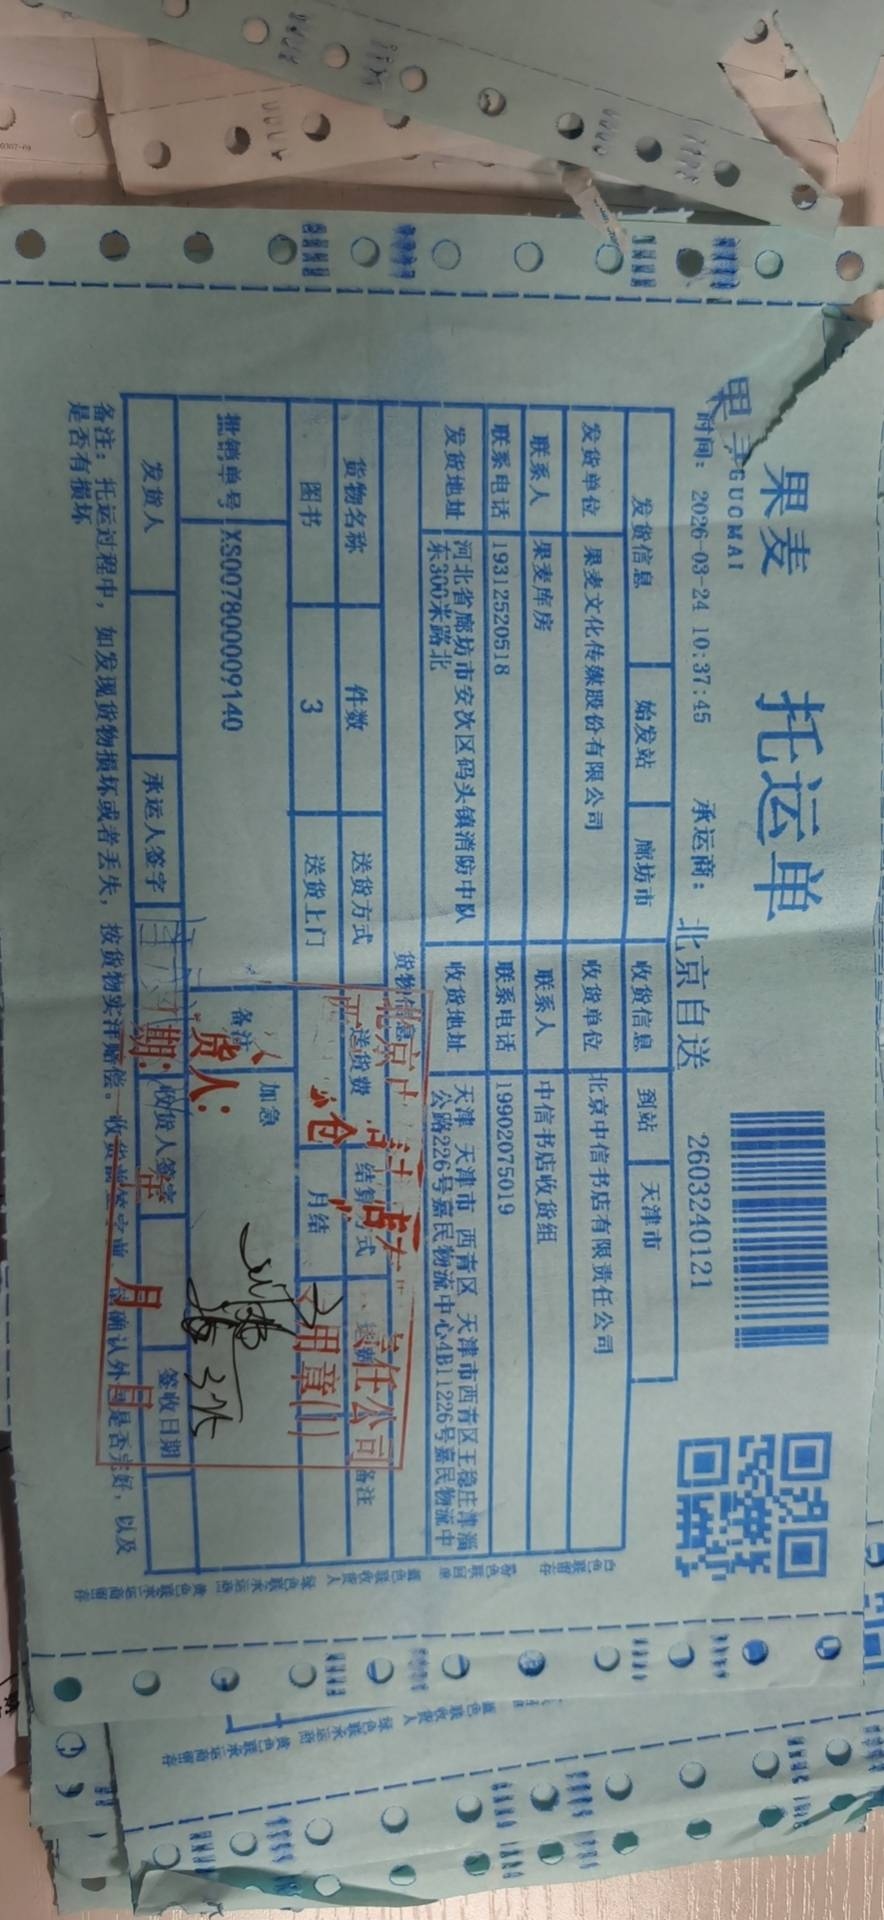 果麦 托运单
GUOMAI
时间：2026-03-24 10:37:45 承运商：北京自送 2603240121
发货信息 始发站 廊坊市 收货信息 到站 天津市
发货单位 果麦文化传媒股份有限公司 收货单位 北京中信书店有限责任公司
联系人 果麦库房 联系人 中信书店收货组
联系电话 19312520518 联系电话 19902075019
发货地址 河北省廊坊市安次区码头镇消防中队东300米路北 收货地址 天津 天津市 西青区 天津市西青区王稳庄津淄公路226号嘉民物流中心4B11226号嘉民物流中
货物信息
货物名称 件数 送货方式 送货费 结算方式 备注
图书 3 送货上门 月结
批销单号 XS00780009140 备注 加急
发货人 承运人签字 收货人签字 签收日期
备注：托运过程中，如发现货物损坏或者丢失，按货物实洋赔偿。收货前签字前，确认外是否完好，以及
是否有损坏
白色联留存 粉色联回单 蓝色联收货人 绿色联承运商 黄色联承运商留存
任公司
用章(1)
货人：
期： 年 月 日
蓝色联收货人 绿色联承运商 黄色联承运商留存